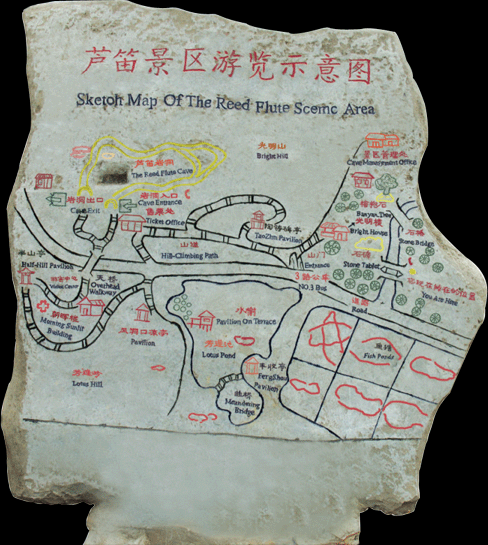 芦笛景区游览示意图
Sketch Map Of The Reed Flute Scenic Area
芦笛岩洞
The Reed Flute Cave
光明山
Bright Hill
景区管理处
Cave Management Office
岩洞出口
Cave Exit
岩洞入口
Cave Entrance
售票处
Ticket Office
陶铸碑亭
TaoZhu Pavilion
榕抱石
Banyan Tree
光明楼
Bright House
石桥
Stone Bridge
半山亭
Half-Hill Pavilion
山道
Hill-Climbing Path
山门
Entrance
石碑
Stone Tablet
3路公车
NO.3 Bus
您现在所在的位置
You Are Here
Visitor Center
天桥
Overhead Walkway
道路
Road
朝晖楼
Morning Sunlit Building
Pavilion
水榭
Pavilion On Terrace
芳莲池
Lotus Pond
丰收亭
FengShou Pavilion
鱼塘
Fish Ponds
芳莲岭
Lotus Hill
曲桥
Meandering Bridge